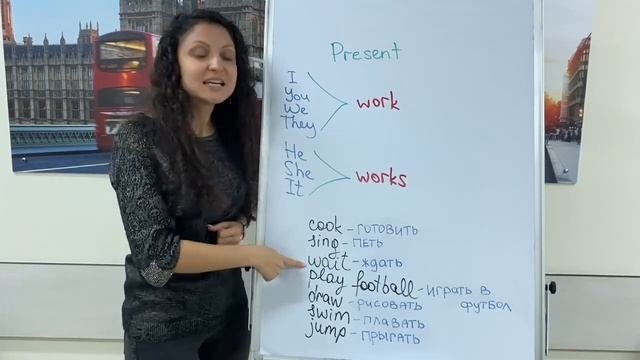 Present
I
You
We
They
work
He
She
It
works
cook - готовить
sing - петь
wait - ждать
play football - играть в
футбол
draw - рисовать
swim - плавать
jump - прыгать